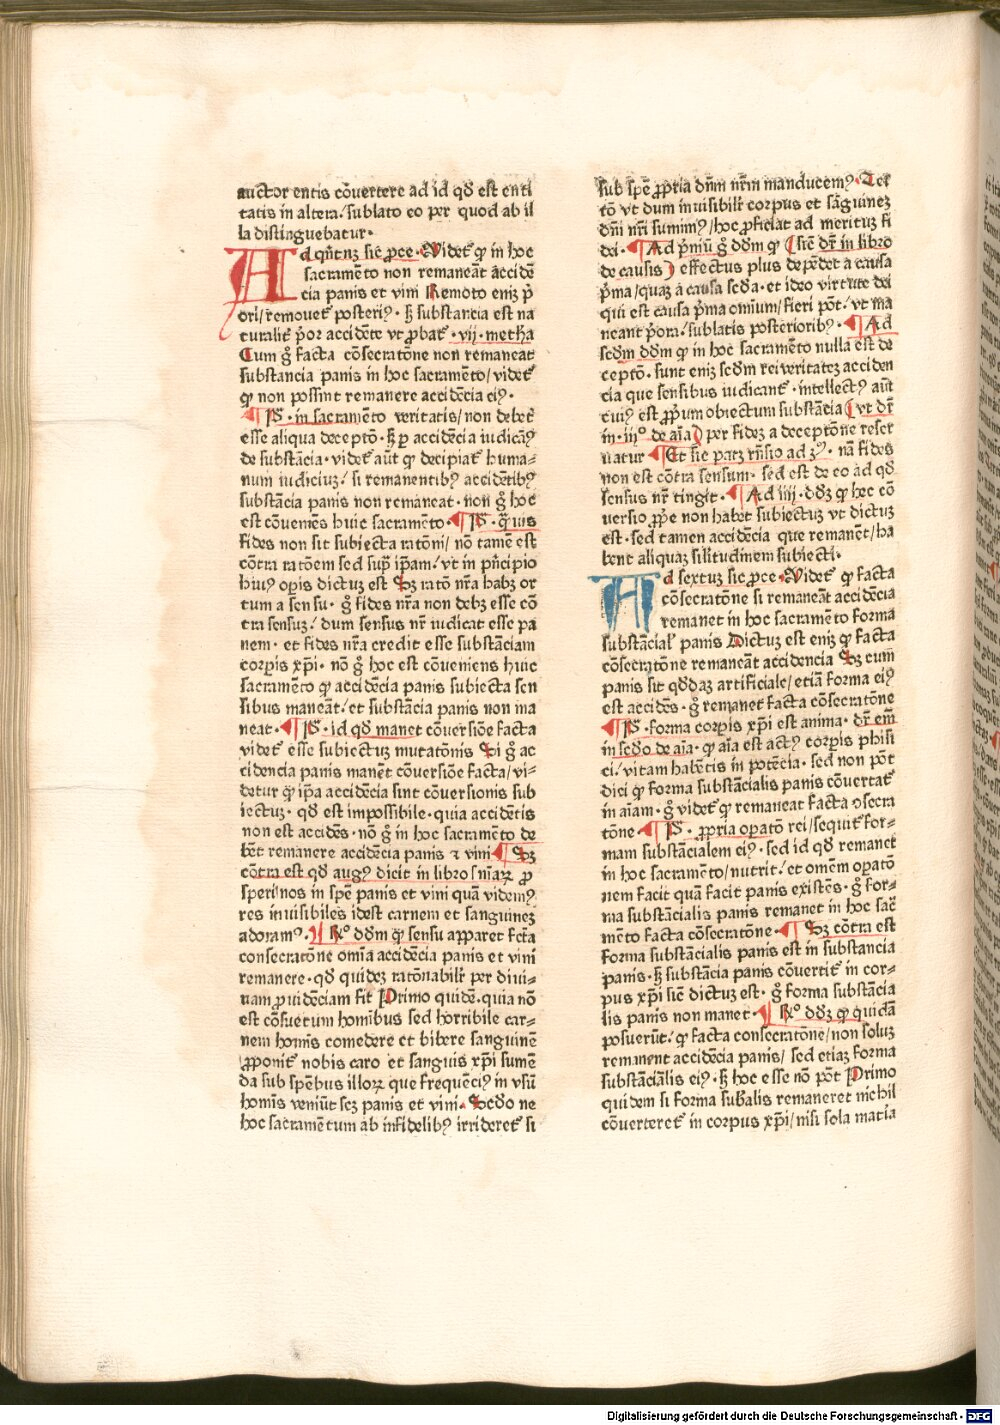 auctor entis cōuertere ad id qd̄ est enti
tatis in altera/ sublato eo per quod ab il
la distinguebatur·
Ad qn̄tuꝫ sic ꝓce· Videt᷑ ꝙ in hoc
sacramēto non remaneāt accidē
cia panis et vini Remoto eniꝫ p̄
ori/ remouet᷑ posteriꝰ· sꝫ substancia est na
turalit᷑ p̄or accidēte vt ꝓbat᷑ · vij· metha
Cum gͦ facta cōsecratōne non remaneat
substancia panis in hoc sacramēto/ videt᷑
ꝙ non possint remanere accidēcia eiꝰ·
¶ Pͭ· in sacramēto veritatis/ non debet
esse aliqua deceptō· sꝫ ꝑ accidēcia iudicaꝰ
de substācia· videt᷑ aūt ꝙ decipiat᷑ huma-
num iudiciuꝫ/ si remanentibꝰ accidētibꝰ
substācia panis non remaneat· non gͦ hoc
est cōueniēs huic sacramēto· ¶ Pͭ· q̄uis
fides non sit subiecta ratōni/ nō tamē est
cōtra ratōem sed supͣ ip̄am/ vt in pͥncipio
huiꝰ opis dictuꝫ est Sꝫ ratō nr̄a habꝫ or
tum a sensu· gͦ fides nr̄a non debꝫ esse cō
tra sensuꝫ/ dum sensus nr̄ iudicat esse pa
nem· et fides nr̄a credit esse substāciam
corꝑis xp̄i· nō gͦ hoc est cōueniens huic
sacramēto ꝙ accidēcia panis subiecta sen
sibus maneāt/ et substācia panis non ma
neat· ¶ Pͭ· id qd̄ manet cōuersiōe facta
videt᷑ esse subiectuꝫ mutatōnis Si gͦ ac
cidencia panis manēt cōuersiōe facta/ vi-
detur ꝙ ip̄a accidēcia sint cōuersionis sub
iectuꝫ· qd̄ est impossibile· quia accidētis
non est accidēs· nō gͦ in hoc sacramēto de
bēt remanere accidēcia panis ⁊ vini ¶ Sꝫ
cōtra est qd̄ augꝰ dicit in libro sn̄iaꝝ ꝓ
speri nos in spē panis et vini quā videmꝰ
res inuisibiles idest carnem et sanguineꝫ
adoramꝰ· ¶ Rͦ dd̄m ꝙ sensu apparet fc̄ta
consecratōne omīa accidēcia panis et vini
remanere· qd̄ quideꝫ ratōnabilr̄ per diui-
nam ꝓuidēciam fit Primo quidē· quia nō
est cōsuetum homībus sed horribile car-
nem homīs comedere et bibere sanguinē
ꝓponit᷑ nobis caro et sanguis xp̄i sumē
da sub spēbus illoꝝ que frequēciꝰ in vsū
homīs veniūt scꝫ panis et vini· Secdo ne
hoc sacramētum ab infidelibꝰ irrideret᷑ si
sub spē ꝓpria dn̄m nr̄m manducemꝰ· Ter
tō vt dum inuisibilr̄ corpus et sāguineꝫ
dn̄i nr̄i sumimꝰ/ hoc ꝓficiat ad merituꝫ fi
dei· ¶ Ad pͥmū gͦ dd̄m ꝙ (sic̄ dr̄ in libro
de causis) effectus plus depēdet a causa
pͥma/ quaꝫ a causa scd̄a· et ideo virtute dei
qui est causa pͥma omīum/ fieri pōt/ vt ma
neant pͥora/ sublatis posterioribꝰ· ¶ Ad
scd̄m dd̄m ꝙ in hoc sacramēto nulla est de
ceptō· sunt eniꝫ scd̄m rei veritateꝫ acciden
cia que sensibus iudicant᷑· intellectꝰ aūt
cuiꝰ est ꝓpͥum obiectum substācia (vt dr̄
in· iijͦ· de aīa) per fideꝫ a deceptōne reser
uatur ¶ Et sic patꝫ rn̄sio ad ꝫꝰ· nā fides
non est cōtra sensum· sed est de eo ad qd̄
sensus nr̄ tingit· ¶ Ad iiij· dd̄ꝫ ꝙ hec cō
uersio ꝓpͥe non habet subiectuꝫ vt dictuꝫ
est· sed tamen accidēcia que remanēt/ ha
bent aliquaꝫ silitudinem subiecti·
Ad sextuꝫ sic ꝓce· Videt᷑ ꝙ facta
cōsecratōne si remaneāt accidēcia
remanet in hoc sacramēto forma
substācial᷑ panis Dictuꝫ est eniꝫ ꝙ facta
cōsecratōne remaneāt accidencia Sꝫ cum
panis sit qd̄daꝫ artificiale/ etiā forma eiꝰ
est accidēs· gͦ remanet facta cōsecratōne
¶ Pͭ· forma corꝑis xp̄i est anima· dr̄ em̄
in scd̄o de aīa· ꝙ aīa est actꝰ corꝑis phisi
ci/ vitam habētis in potēcia· sed non pōt
dici ꝙ forma substācialis panis cōuertat᷑
in aīam· gͦ videt᷑ ꝙ remaneat facta ↄsecra
tōne ¶ Pͭ· ꝓpria oꝑatō rei/ sequit᷑ for-
mam substācialem eiꝰ· sed id qd̄ remanet
in hoc sacramēto/ nutrit/ et omēm oꝑatō
nem facit quā facit panis existēs· gͦ for-
ma substācialis panis remanet in hoc sacͣ
mēto facta cōsecratōne· ¶ Sꝫ cōtra est
forma substācialis panis est in substancia
panis· sꝫ substācia panis cōuertit᷑ in cor-
pus xp̄i sic̄ dictuꝫ est· gͦ forma substācia
lis panis non manet· ¶ Rͦ dd̄ꝫ ꝙ quidā
posuerūt/ ꝙ facta consecratōne/ non soluꝫ
remanent accidēcia panis/ sed etiaꝫ forma
substāciālis eiꝰ· sꝫ hoc esse nō pōt Primo
quidem si forma sub̄alis remaneret nichil
cōuerteret᷑ in corpus xp̄i/ nisi sola mat̄ia
Digitalisierung gefördert durch die Deutsche Forschungsgemeinschaft - DFG